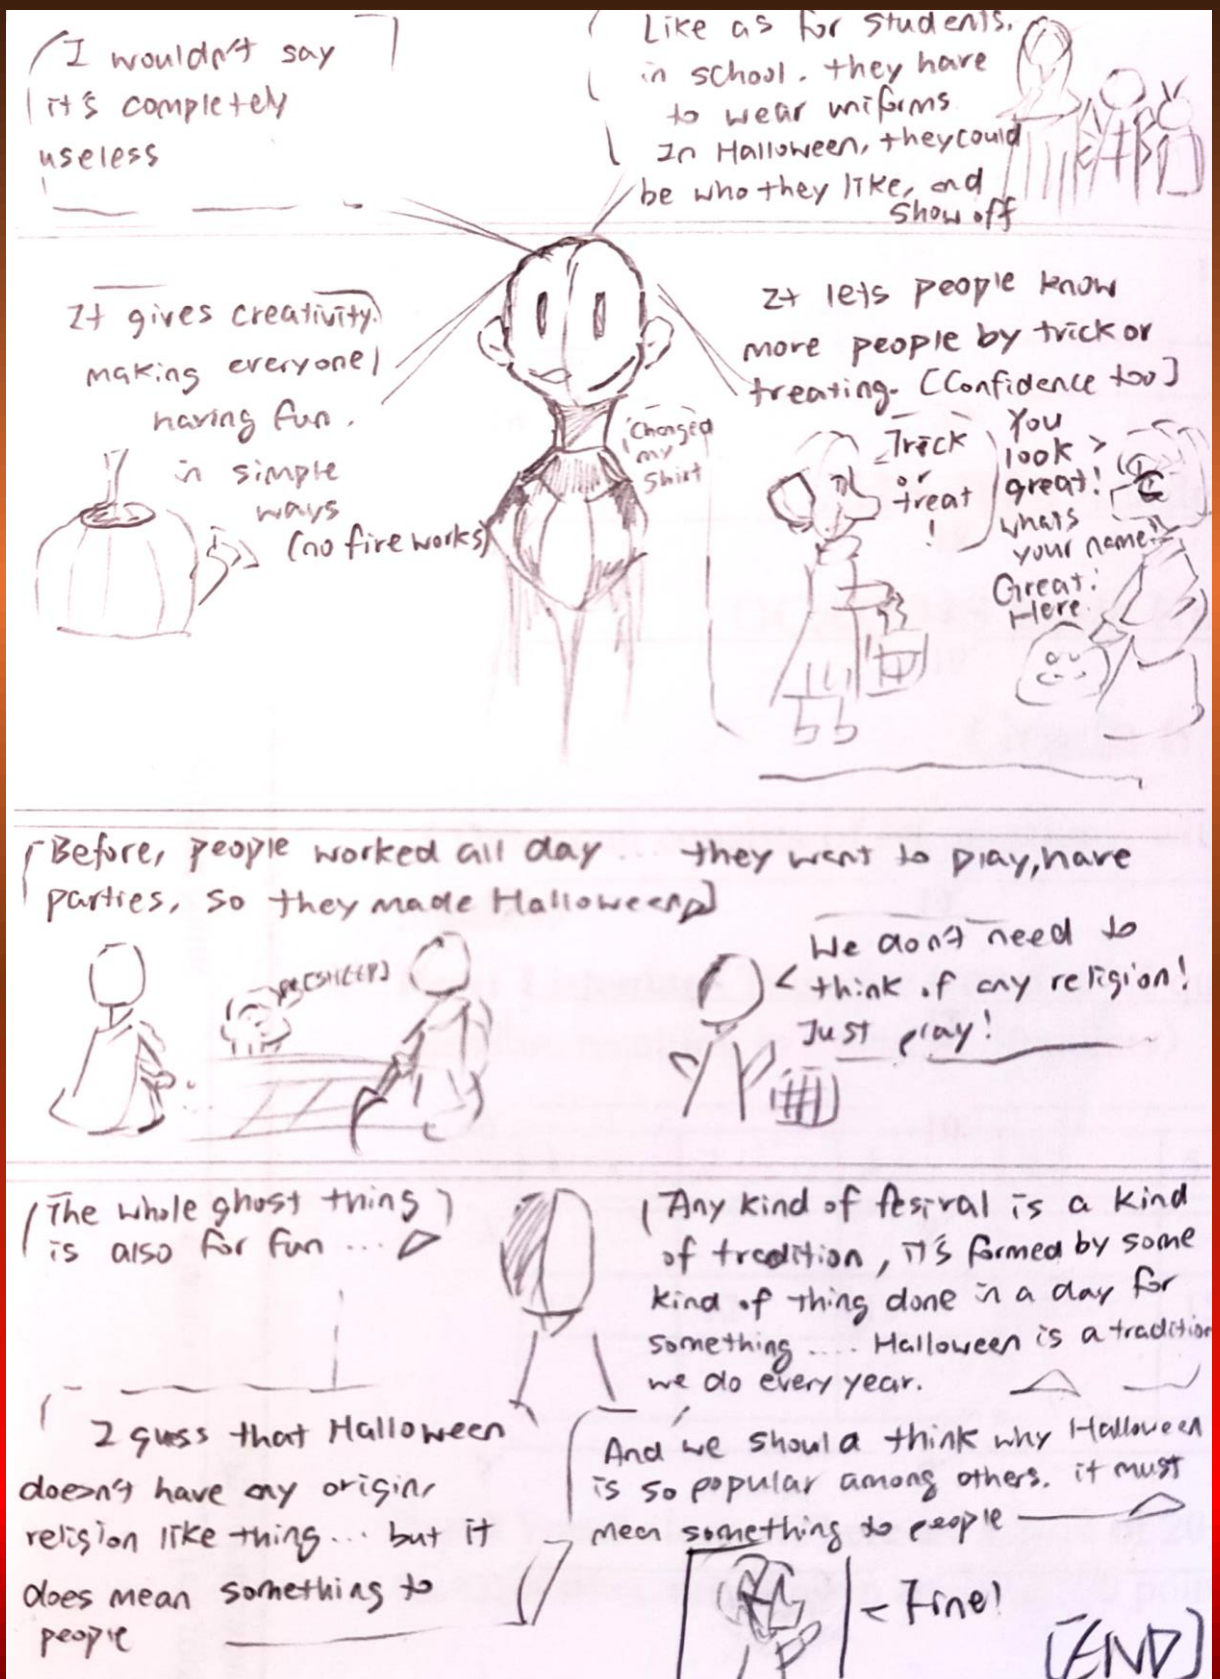 I wouldn't say
it's completely
useless
Like as for students.
in school. they have
to wear uniforms
In Halloween, they could
be who they like, and
show off
It gives creativity.
making everyone
having fun.
in simple
ways
(no fire works)
Changed
my
shirt
It lets people know
more people by trick or
treating. [Confidence too]
Trick
or
treat
!
You
look
great!
whats
your name
Great!
Here
Before, people worked all day ... they want to play, have
parties, so they made Halloween
[SHEEP]
We don't need to
think of any religion!
Just play!
The whole ghost thing
is also for fun ...
Any kind of fesival is a kind
of tradition, it's formed by some
kind of thing done in a day for
something .... Halloween is a tradition
we do every year.
I guss that Halloween
doesn't have any origin,
religion like thing... but it
does mean something to
people
And we should think why Halloween
is so popular among others. it must
mean something to people
- Fine!
[END]